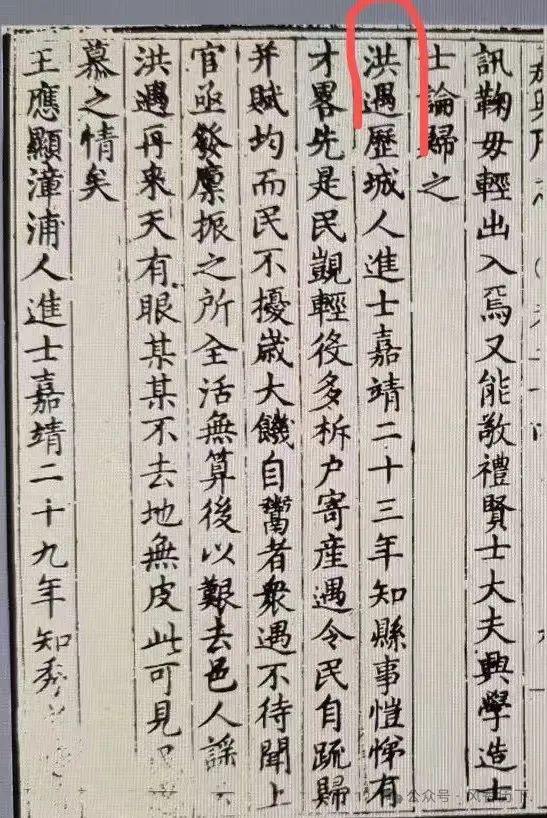 訊鞠毋輕出入焉又能敬禮賢士大夫興學造士
士論歸之
洪遇歷城人進士嘉靖二十三年知縣事愷悌有
才畧先是民覬輕役多析户寄産遇令民自疏歸
并賦均而民不擾歲大饑自鬻者衆遇不待聞上
官亟發廪振之所全活無算後以艱去邑人謡
洪遇再来天有眼某某不去地無皮此可見
慕之情矣
王應顯漳浦人進士嘉靖二十九年知秀
公众号